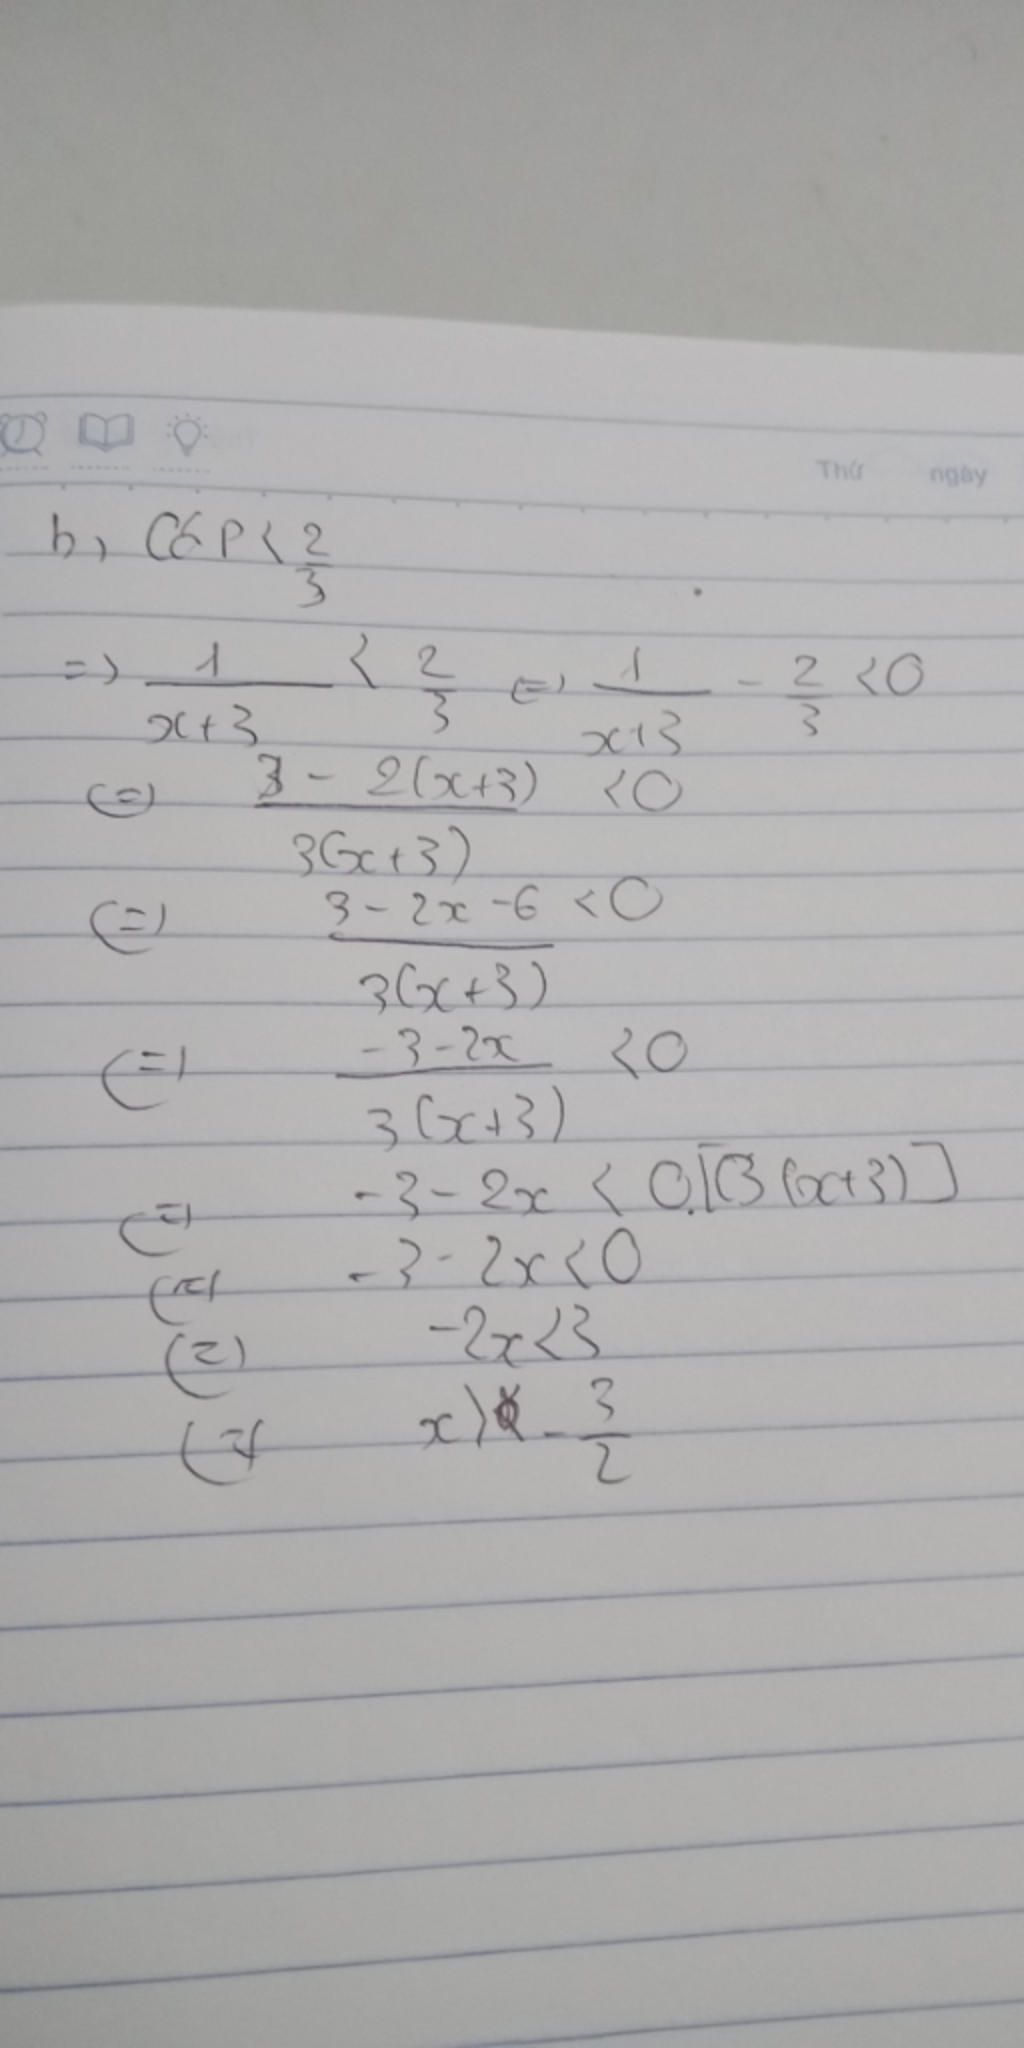 Thứ ngày
b, Có P < 2/3
=> 1/(x+3) < 2/3 <=> 1/(x+3) - 2/3 < 0
<=> (3 - 2(x+3))/(3(x+3)) < 0
<=> (3 - 2x - 6)/(3(x+3)) < 0
<=> (-3 - 2x)/(3(x+3)) < 0
<=> -3 - 2x < 0.[3(x+3)]
<=> -3 - 2x < 0
<=> -2x < 3
<=> x > -3/2